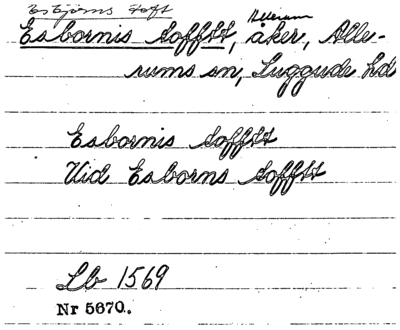 Esbjörns toft
Esbornis tofftt, åker, Alle-
Allerum
rums sn, Luggude hd
Esbornis tofftt
Uid Esborns tofftt
Lb 1569
Nr 5670.